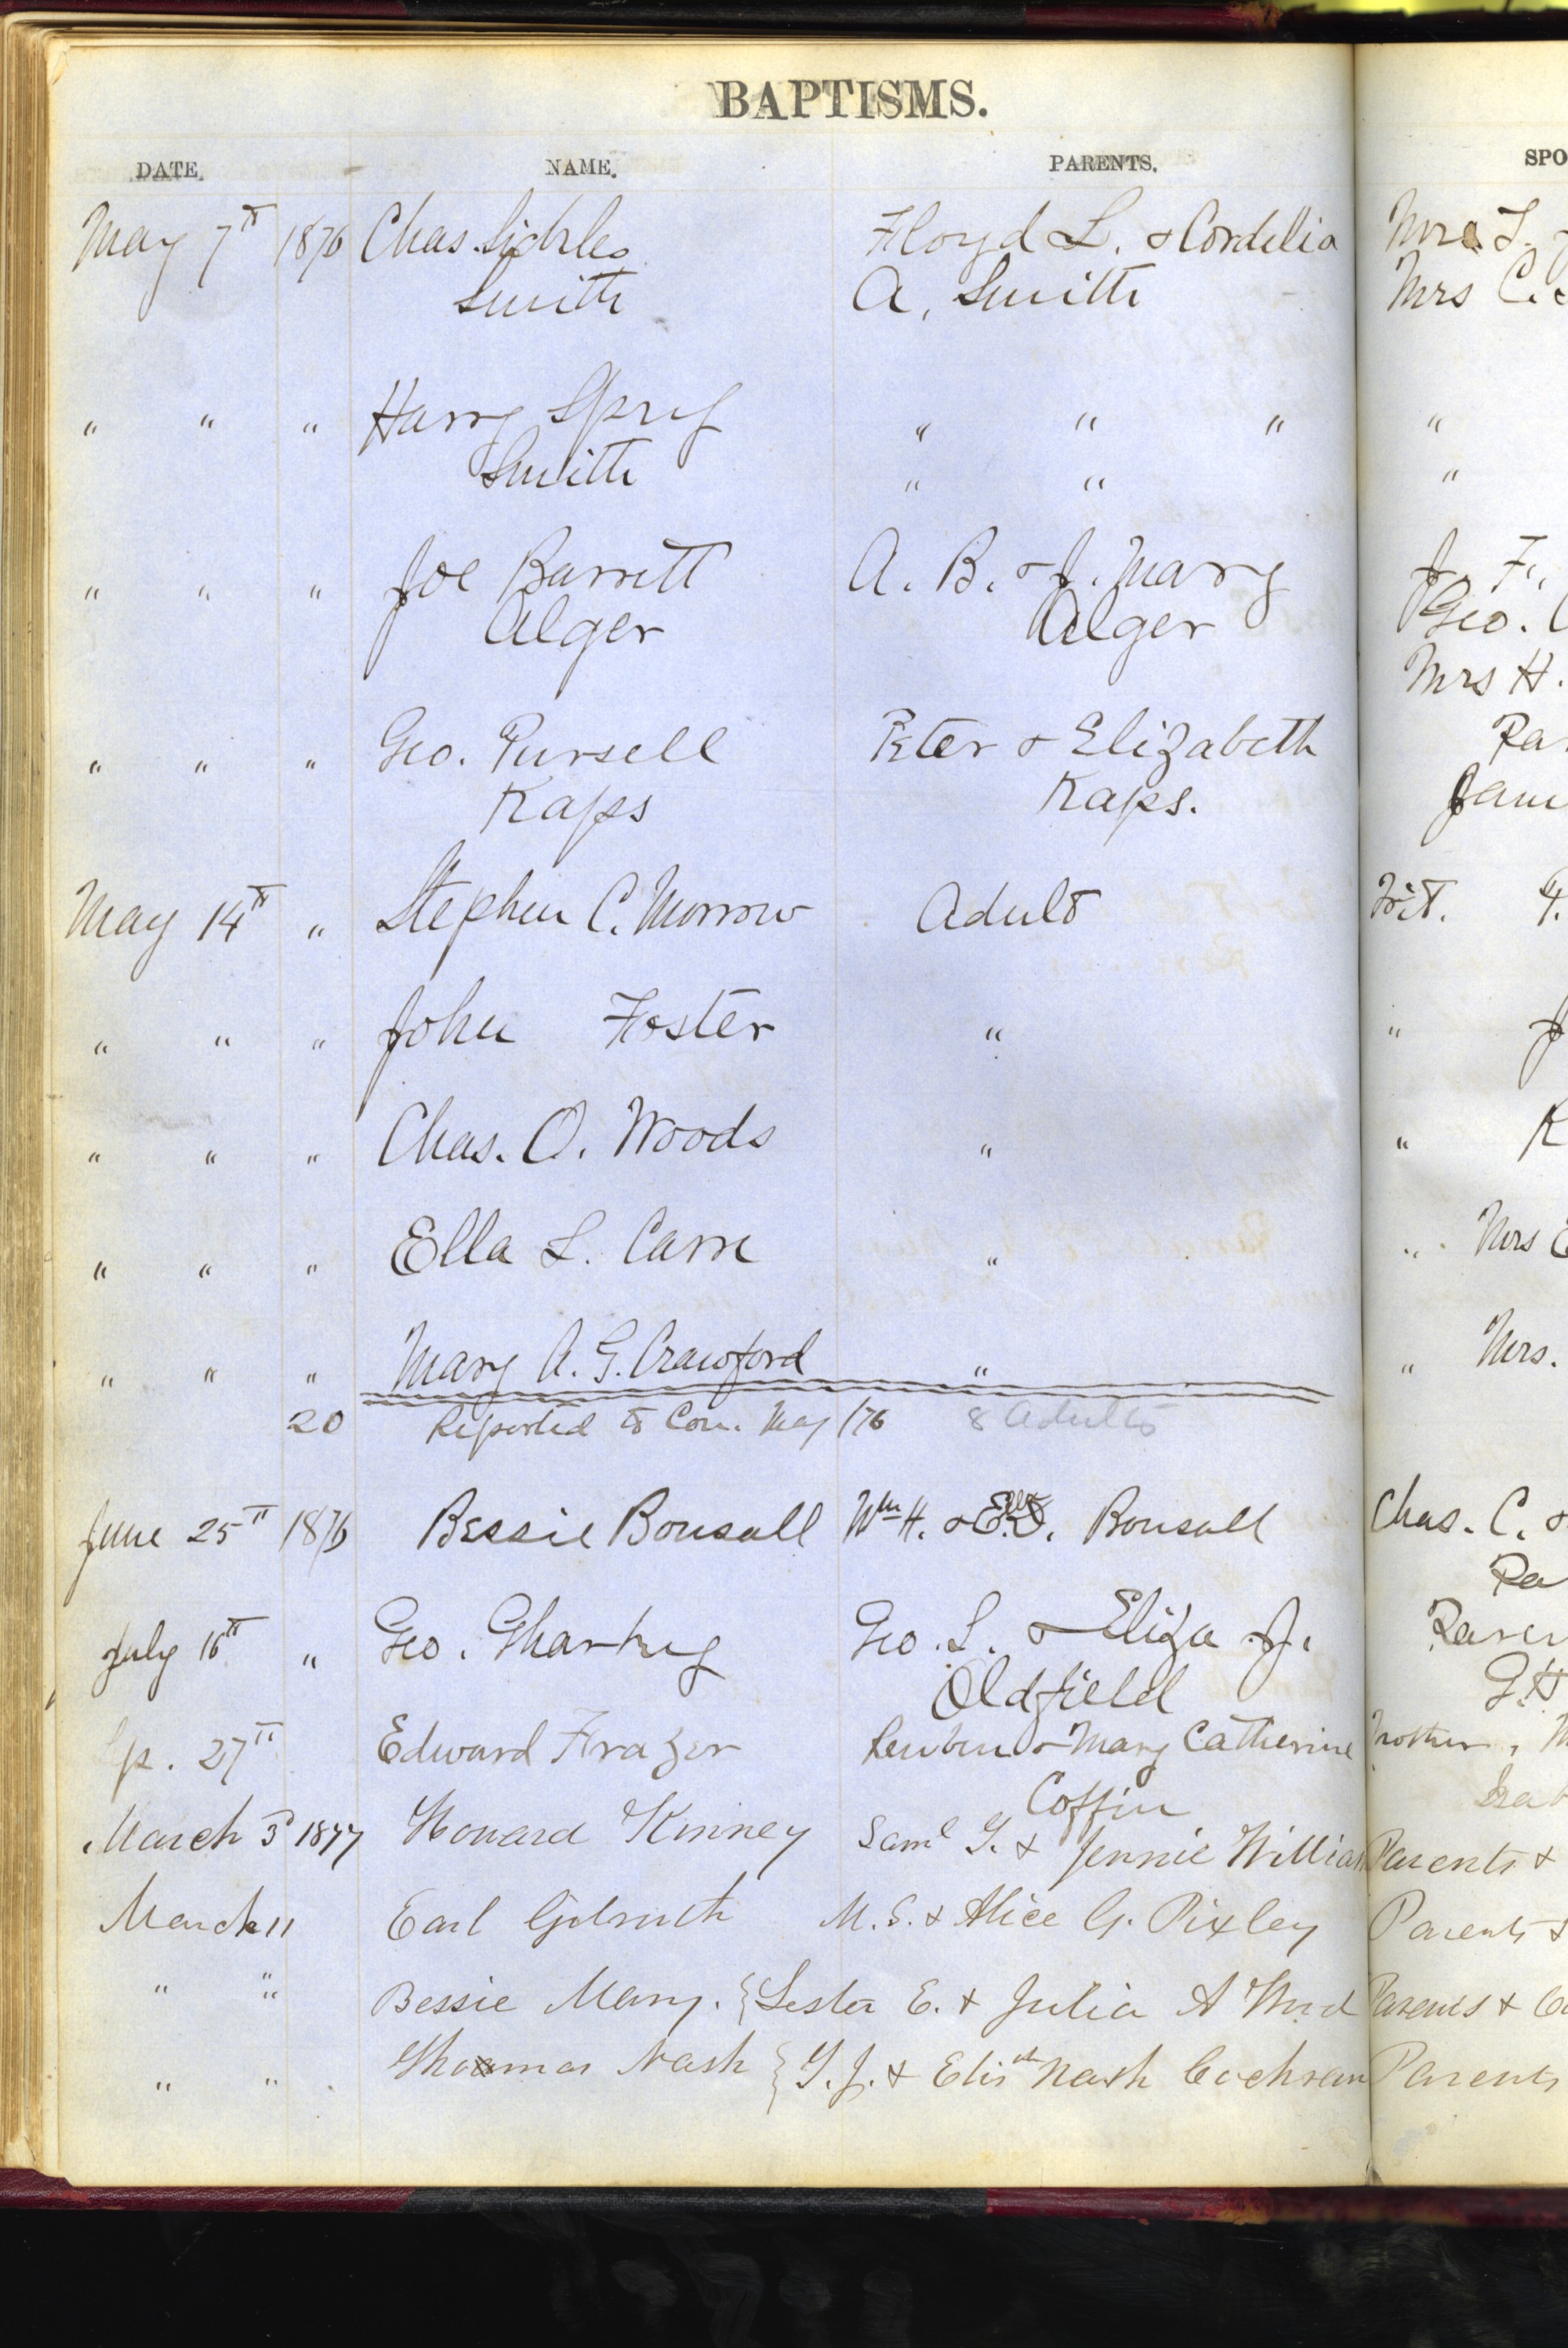 BAPTISMS.
DATE. NAME. PARENTS. SPO
May 7th 1876 Chas. Sickles Floyd L. & Cordelia Mrs
Smith A. Smith Mrs C.
" " " Harry Sprig " " " "
Smith " " "
" " " Joe Barrett A. B. & J. Mary J. F.
Alger Alger Geo.
Mrs H.
" " " Geo. Pursell Peter & Elizabeth
Kaps Kaps. Jam
May 14th " Stephen C. Morrow Adult Wit.
" " " John Foster " "
" " " Chas. O. Woods " " K
" " " Ella L. Carre " " Mrs
" " " Mary A. G. Crawford " " Mrs.
20 Reported to Con. May /76 8 Adults
June 25th 1876 Bessie Bonsall Wm H. & Bonsall Chas. C. &
July 16th " Geo. Gharky Geo. S. & Eliza J.
Oldfield
27th Edward Frazer Reuben & Mary Catherine Mother,
Coffin
March 3d 1877 Howard Kinney Saml G. & Jennie William Parents &
March 11 Earl Gilruth M. S. & Alice G. Pixley Parents &
" " Bessie Mary. { Lester E. & Julia A Parents &
" " Thomas Nash { T. J. & Elisth Nash Cochran Parents